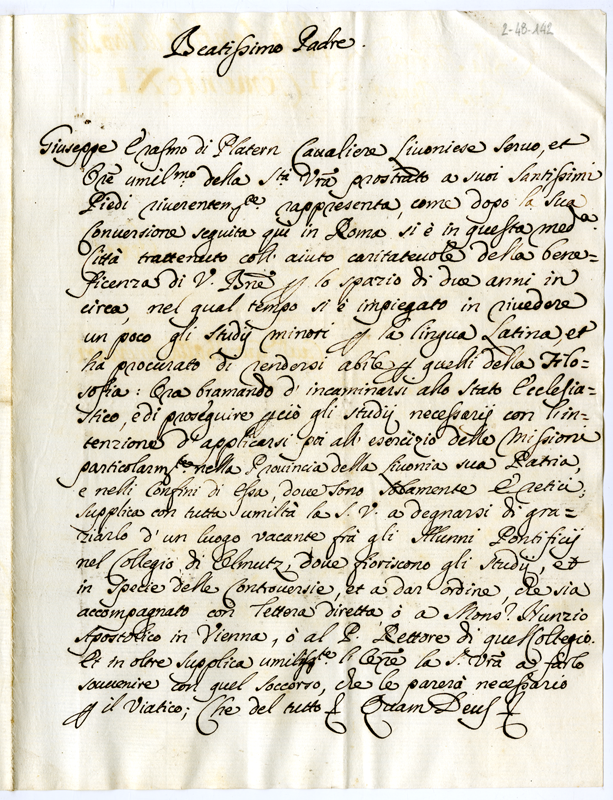 2-48-142
Beatissimo Padre.
Giuseppe Erasmo di Platern Cavaliere Livoniese servo, et
Ore umil.mo della S.tà Vrã prostrato a suoi Santissimi
Piedi riverentem.te rappresenta, come dopo la sua
Conversione seguita quì in Roma si è in questa med.a
Città trattenuto coll' aiuto caritatevole della bene=
ficenza di V. Bne ꝑ lo spazio di due anni in
circa, nel qual tempo si è impiegato in rivedere
un poco gli studij minori ꝑ la lingua Latina, et
ha procurato di rendersi abile ꝑ quelli della Filo=
sofia: Ora bramando d' incaminarsi allo Stato Ecclesia=
stico, e di proseguire ꝑ ciò gli studij necessarij con l' in=
tenzione d' applicarsi poi all' esercizio delle Missioni
particolarm.te nella Provincia della Livonia sua Patria,
e nelli Confini di essa, dove sono solamente Eretici;
supplica con tutta umiltà la S. V. a degnarsi di gra=
ziarlo d' un luogo vacante frà gli Alunni Pontificij
nel Collegio di Olmutz, dove fioriscono gli studij, et
in specie delle Controversie, et a dar ordine, che sia
accompagnato con lettera diretta ò a Mons.r Nunzio
Apostolico in Vienna, ò al P. Rettore di quel Collegio.
Et in oltre supplica la S. Vrã a farlo
sovvenire con quel soccorso, che le parerà necessario
ꝑ il Viatico; Che del tutto Quam Deus